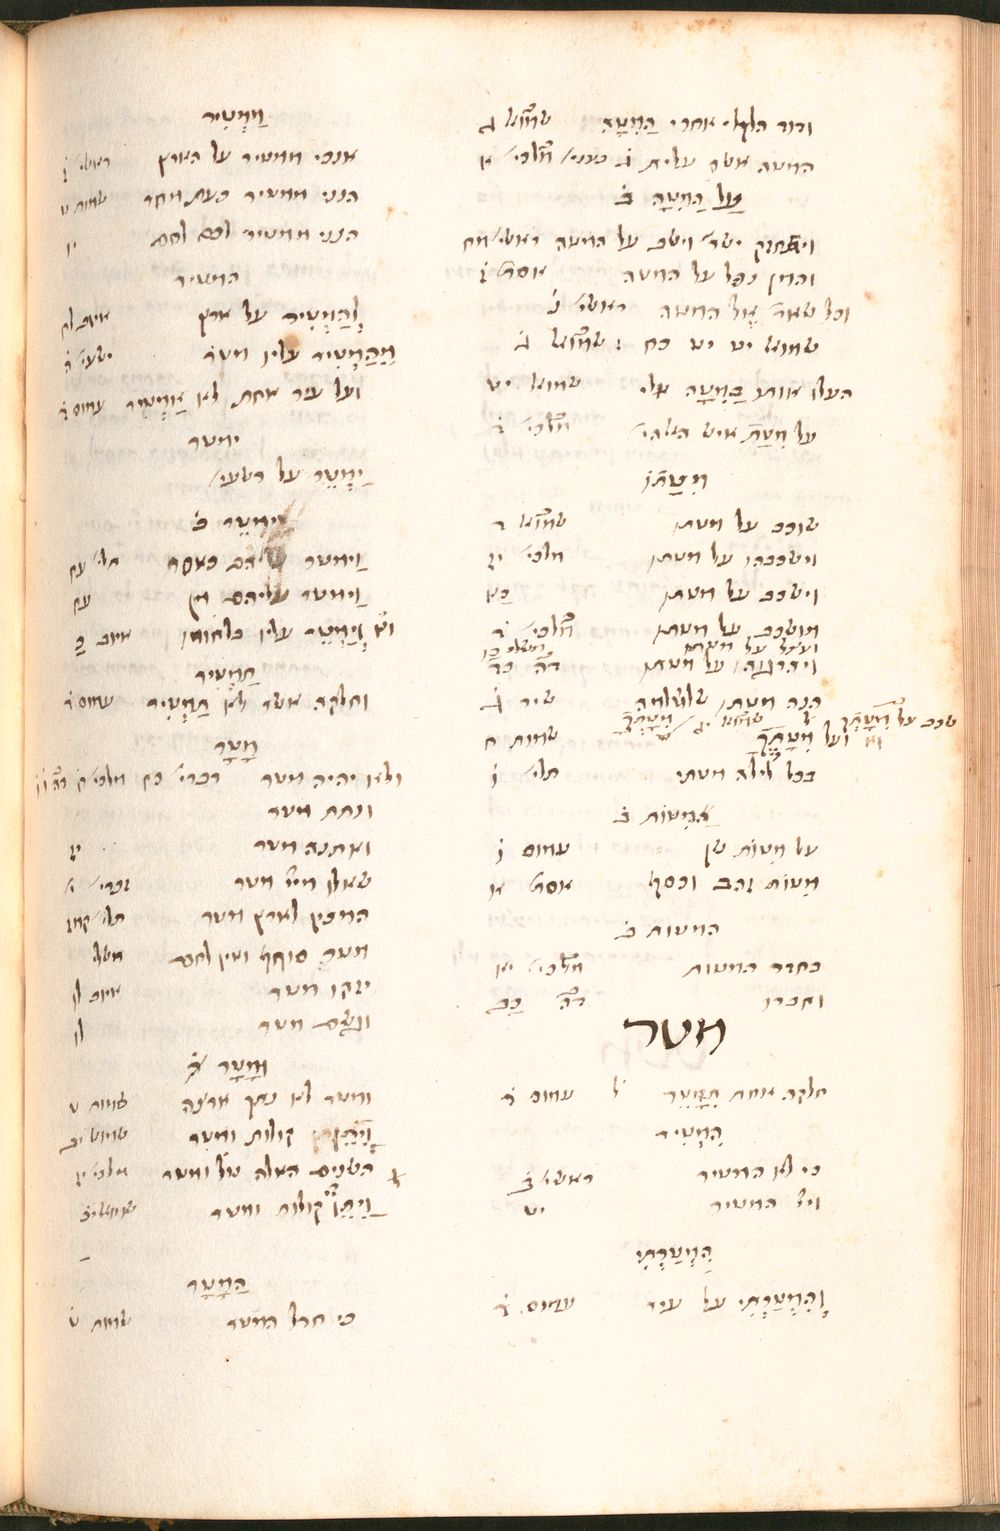 ודוד הולך אחרי הַמִטָה שמואל ג
המטה אשר עלית ג בענין מלכי׳ א
עַל הַמִטָה ב
ויתחזק ישר׳ וישב על המטה ראשי׳ מח
והמן נפל על המטה אסת׳ ז
וכל שאר׳ אל המטה ראשי׳ נ
שמואל יט יט כח : שמואל ג
העלו אותו בַמִטָה אלי שמואל יט
על מִטַת איש האלהי׳ מלכי׳ ד
מִטָתוֹ
שוכב על מטתו שמואל ד
וישכבהו על מטתו מלכי׳ יז
וישכב על מטתו כא
ותשכב על מטתו מלכי׳ ד
ועצל על מטתו משלי כו
ויהרגהו על מטתו דה כד
הנה מטתו שלשלמה שיר ג
שכב על מִשָכָבְךָ שמואל יג
ועל מִטָתֶךָ שמות ח
בכל לילה מטתי תלי׳ ו
מִטוֹת ב
על מִטוֹת שן עמוס ו
מִטוֹת זהב וכסף אסת׳ א
המטות ב
בחדר המטות מלכי׳ יא
וחברו דה כב
מטר
חלקה אחת תִמָטֵר ל עמוס ד
הִמְטִיר
כי לא המטיר ראשי׳ ב
ויי׳ המטיר יט
הִמְטַרְתִי
וְהִמְטַרְתִי על עיר עמוס ד
מַמְטִיר
אנכי ממטיר על הארץ ראשי׳ ז
הנני ממטיר כעת מחר שמות ט
הנני ממטיר לכם לחם יו
המטיר
לְהַמְטִיר על ארץ איוב לח
מֵהַמְטִיר עליו מטר ישעי׳ ה
ועל עיר אחת לא אַמְטִיר עמוס ד
ימטר
יַמְטֵר על רשעי׳
וימטר ב
וַימטר עליהם כאפר תלי׳ עח
וַימטר עליהם מן עח
וא׳ וְיַמְטֵר עלימו בלחומו איוב כ
תַמְטִיר
וחלקה אשר לא תַמְטִיר עמוס ד
מָטָר
ולא יהיה מטר דברי׳ כח מלכי׳ ח דה ו ז
ונתת מטר
ואתנה מטר יז
שאלו מיי׳ מטר זכרי׳ י
המכין לארץ מטר תלי׳ קמז
מטר סוחף ואין לחם משלי
יזקו מטר איוב לו
וגשם מטר לז
וּמָטָר ג
ומטר לא נתך ארצה שמות ט
וְיִתֵן קולות ומטר שמואל יב
השנים האלה טל ומטר מלכי׳ יז
וַיִתֵן יי׳ קולות ומטר שמואל יב
הַמָטָר
כי חדל המטר שמות ט